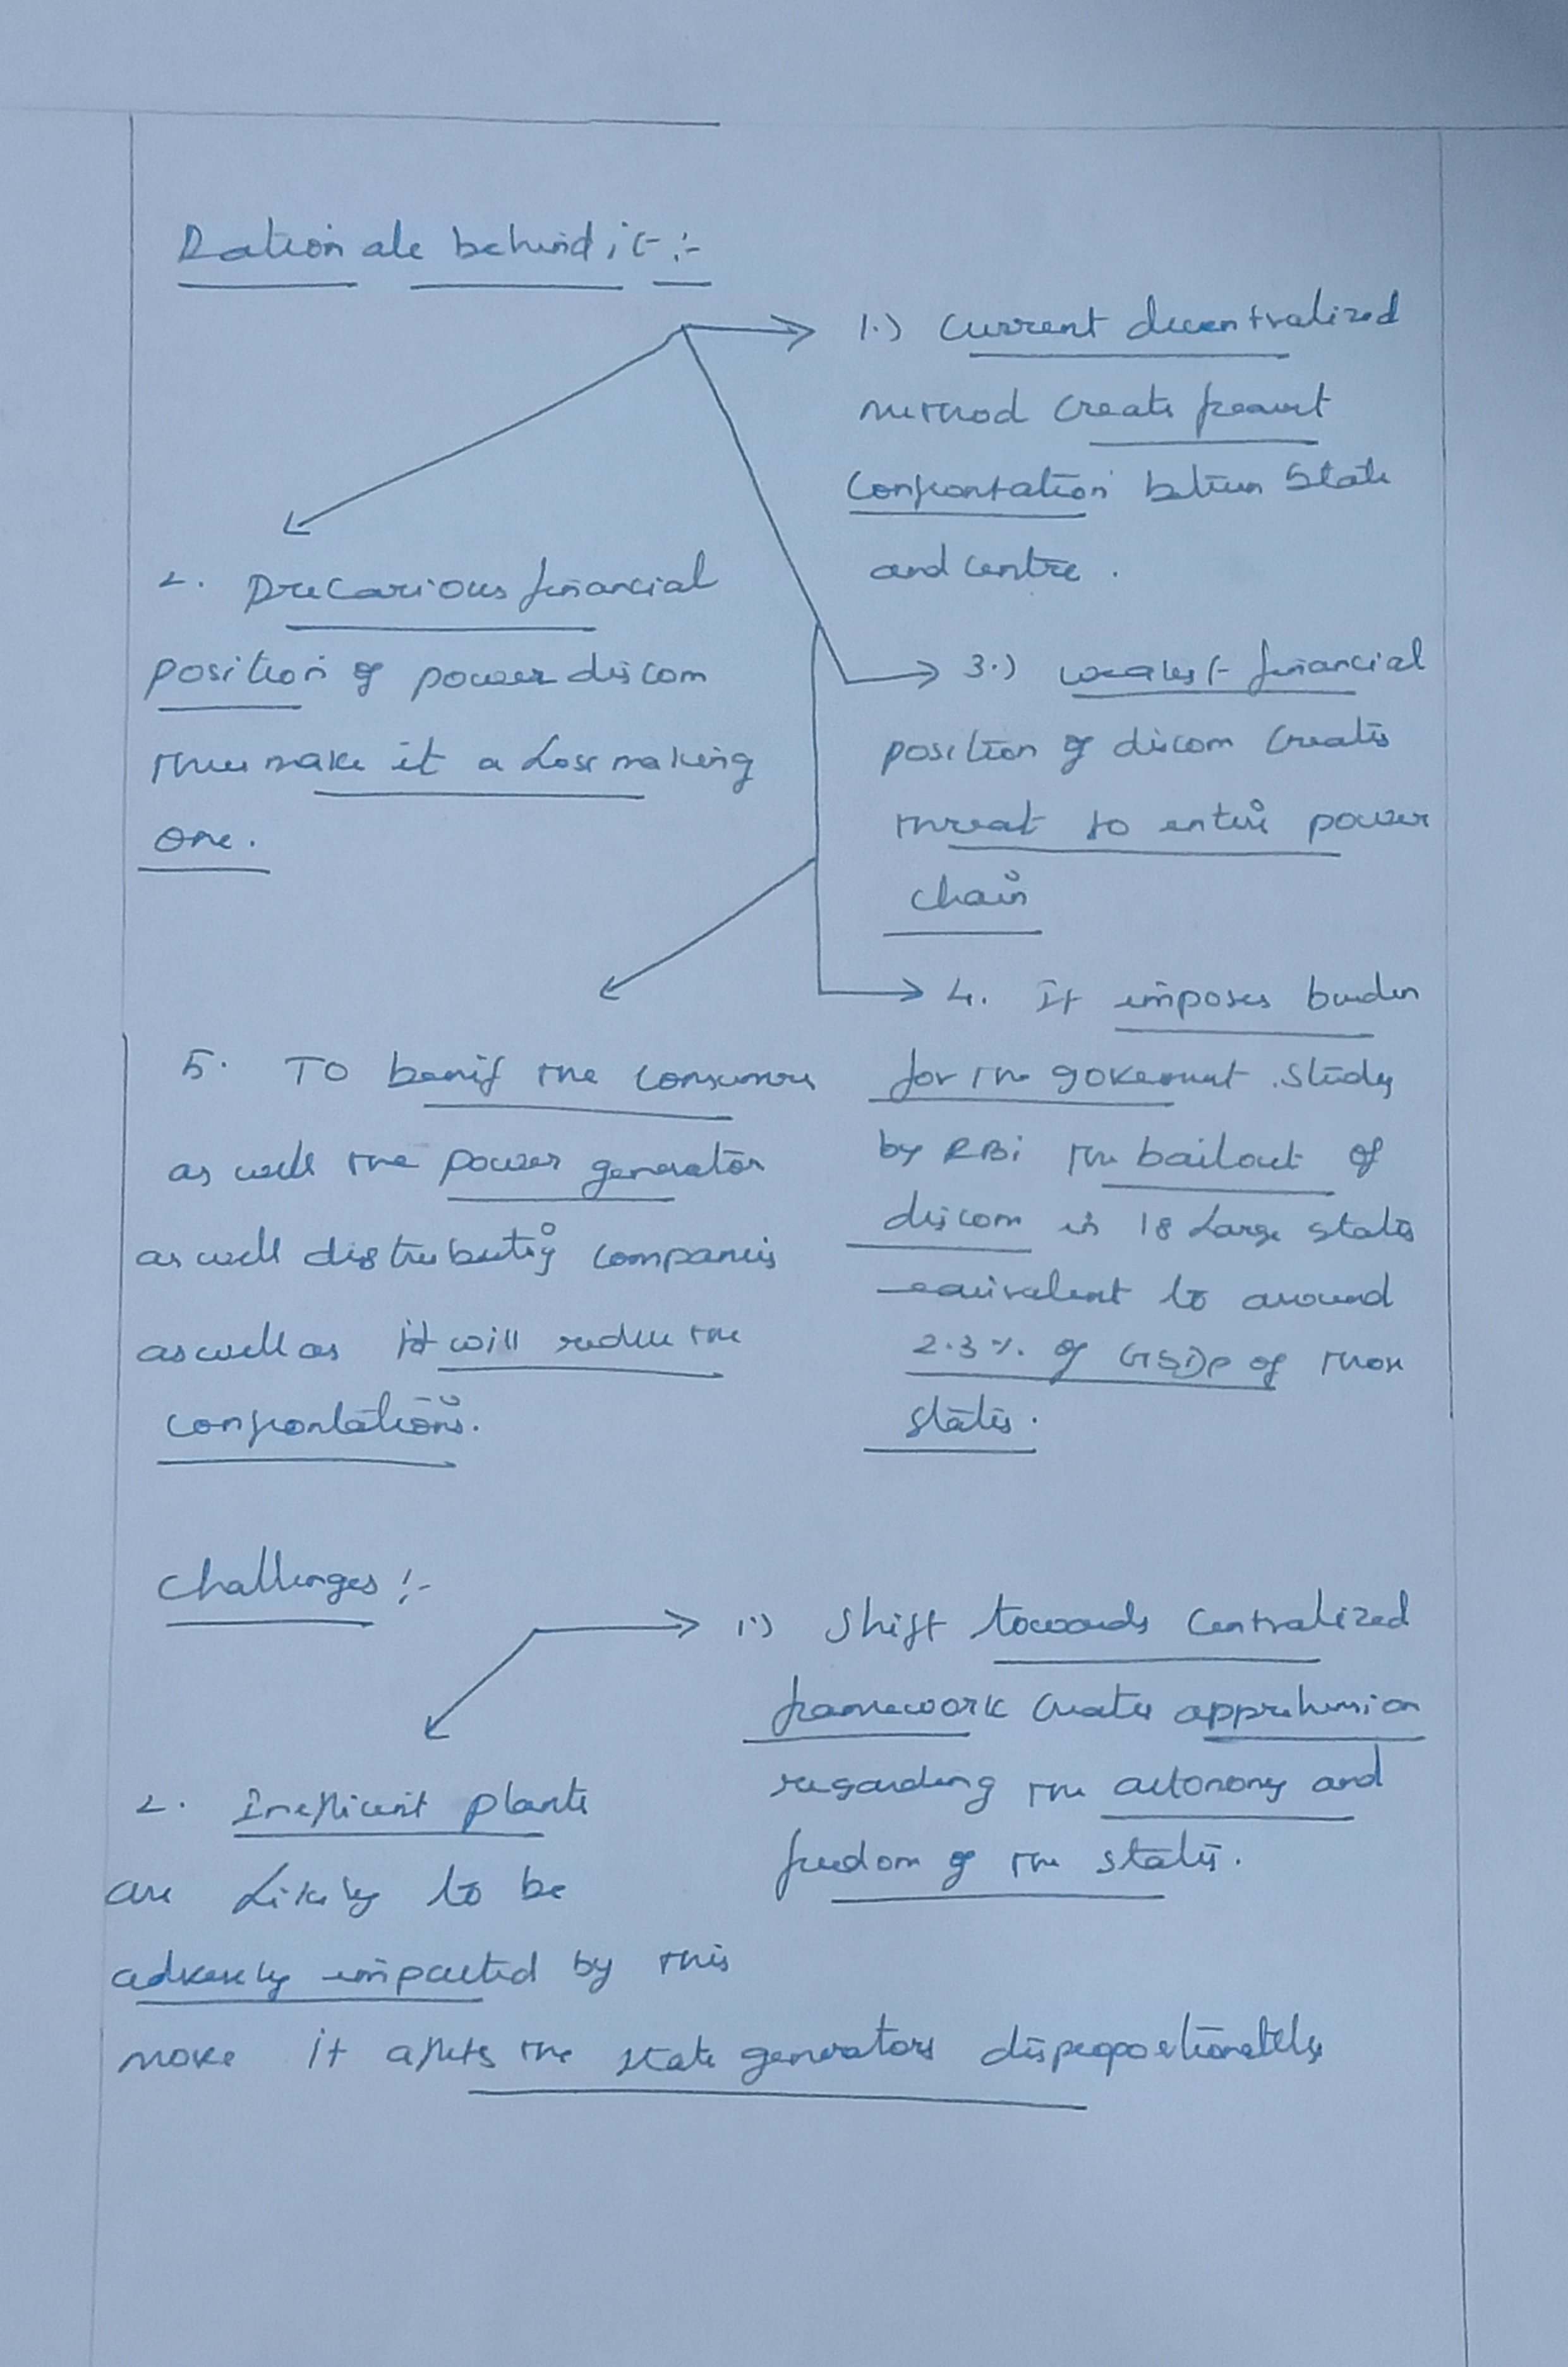 Rationale behind it :-
1.) Current decentralized
method create
confrontation between State
and centre .
2. Precarious financial
position of power discom
make it a loss making
one.
3.) weakest financial
position of discom creates
threat to entire power
chain
4. It imposes burden
for the government . Study
by RBI the bailout of
discom in 18 large states
equivalent to around
2.3 %. of GSDP of those
states.
5. To benif the consumers
as well the power generator
as well distributing companies
as well as it will reduce the
confrontations.
Challenges :-
1.) Shift towards Centralized
framework creates apprehension
regarding the autonomy and
freedom of the states.
2. Inefficient plants
are likely to be
adversely impacted by this
move it affects the state generators disproportionately